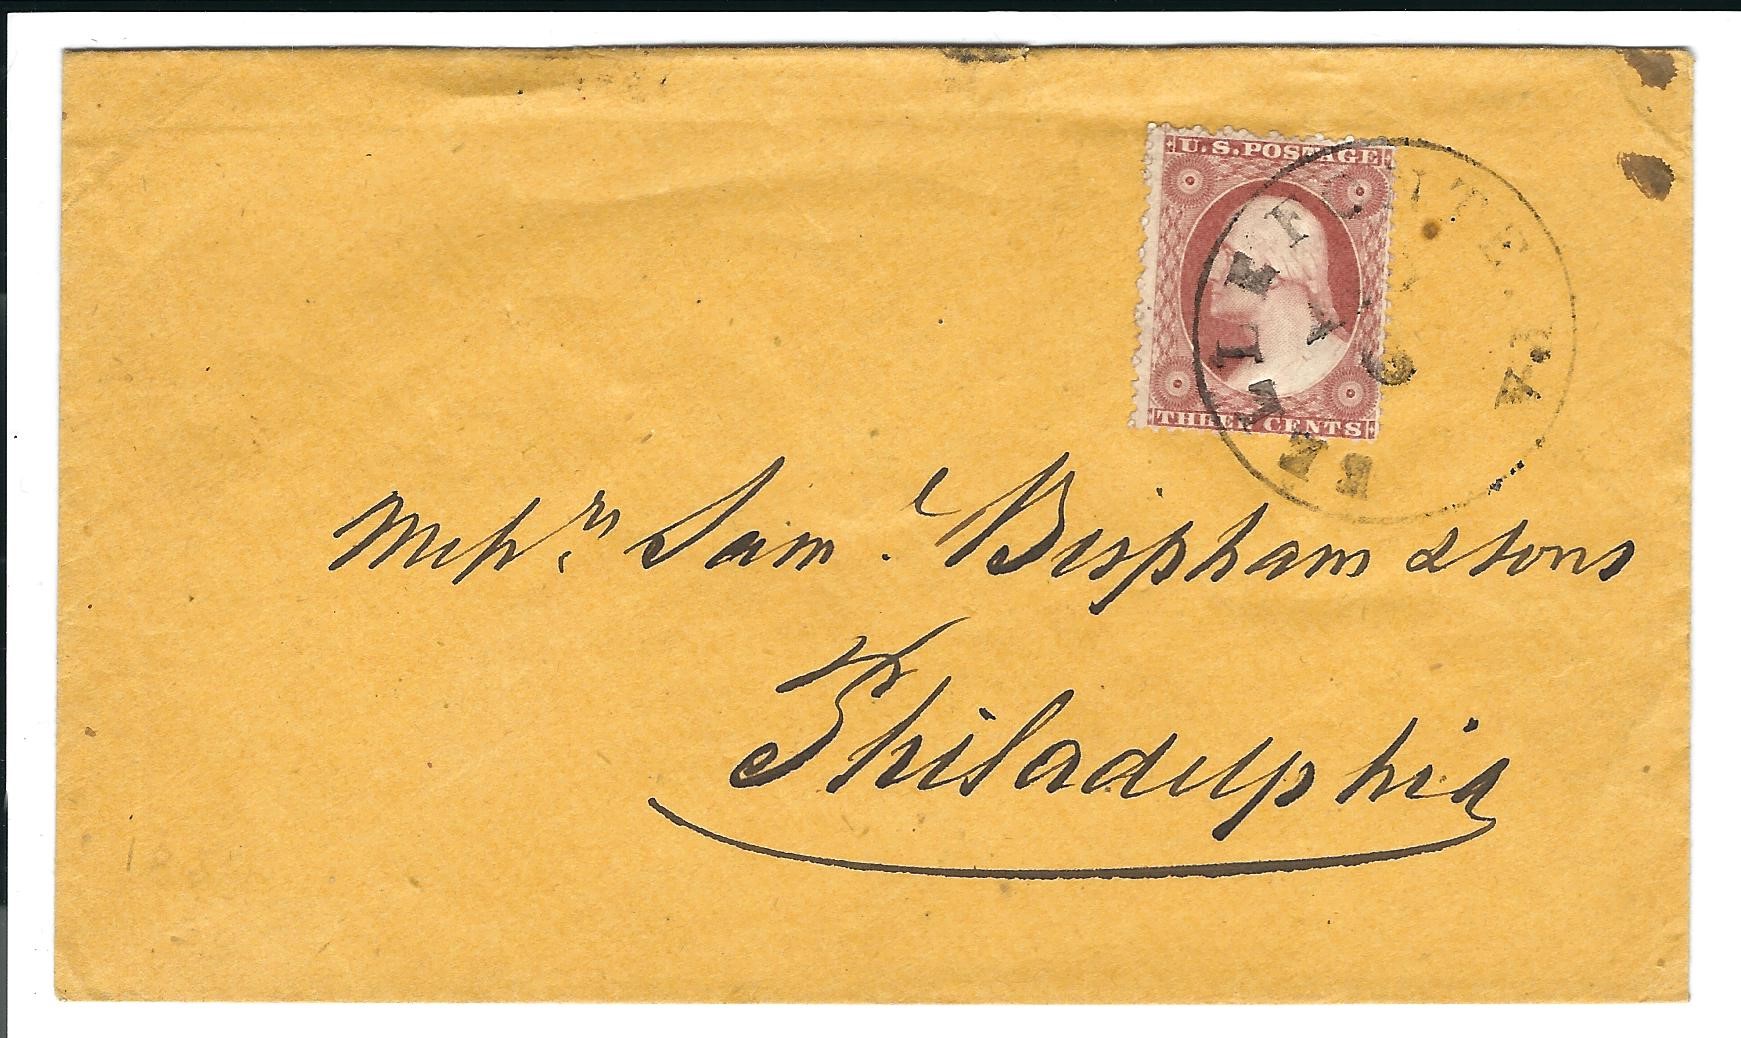 U.S. POSTAGE
THREE CENTS
BELLEFONTE
PA.
Mess.rs Sam.l Bispham & Sons
Philadelphia